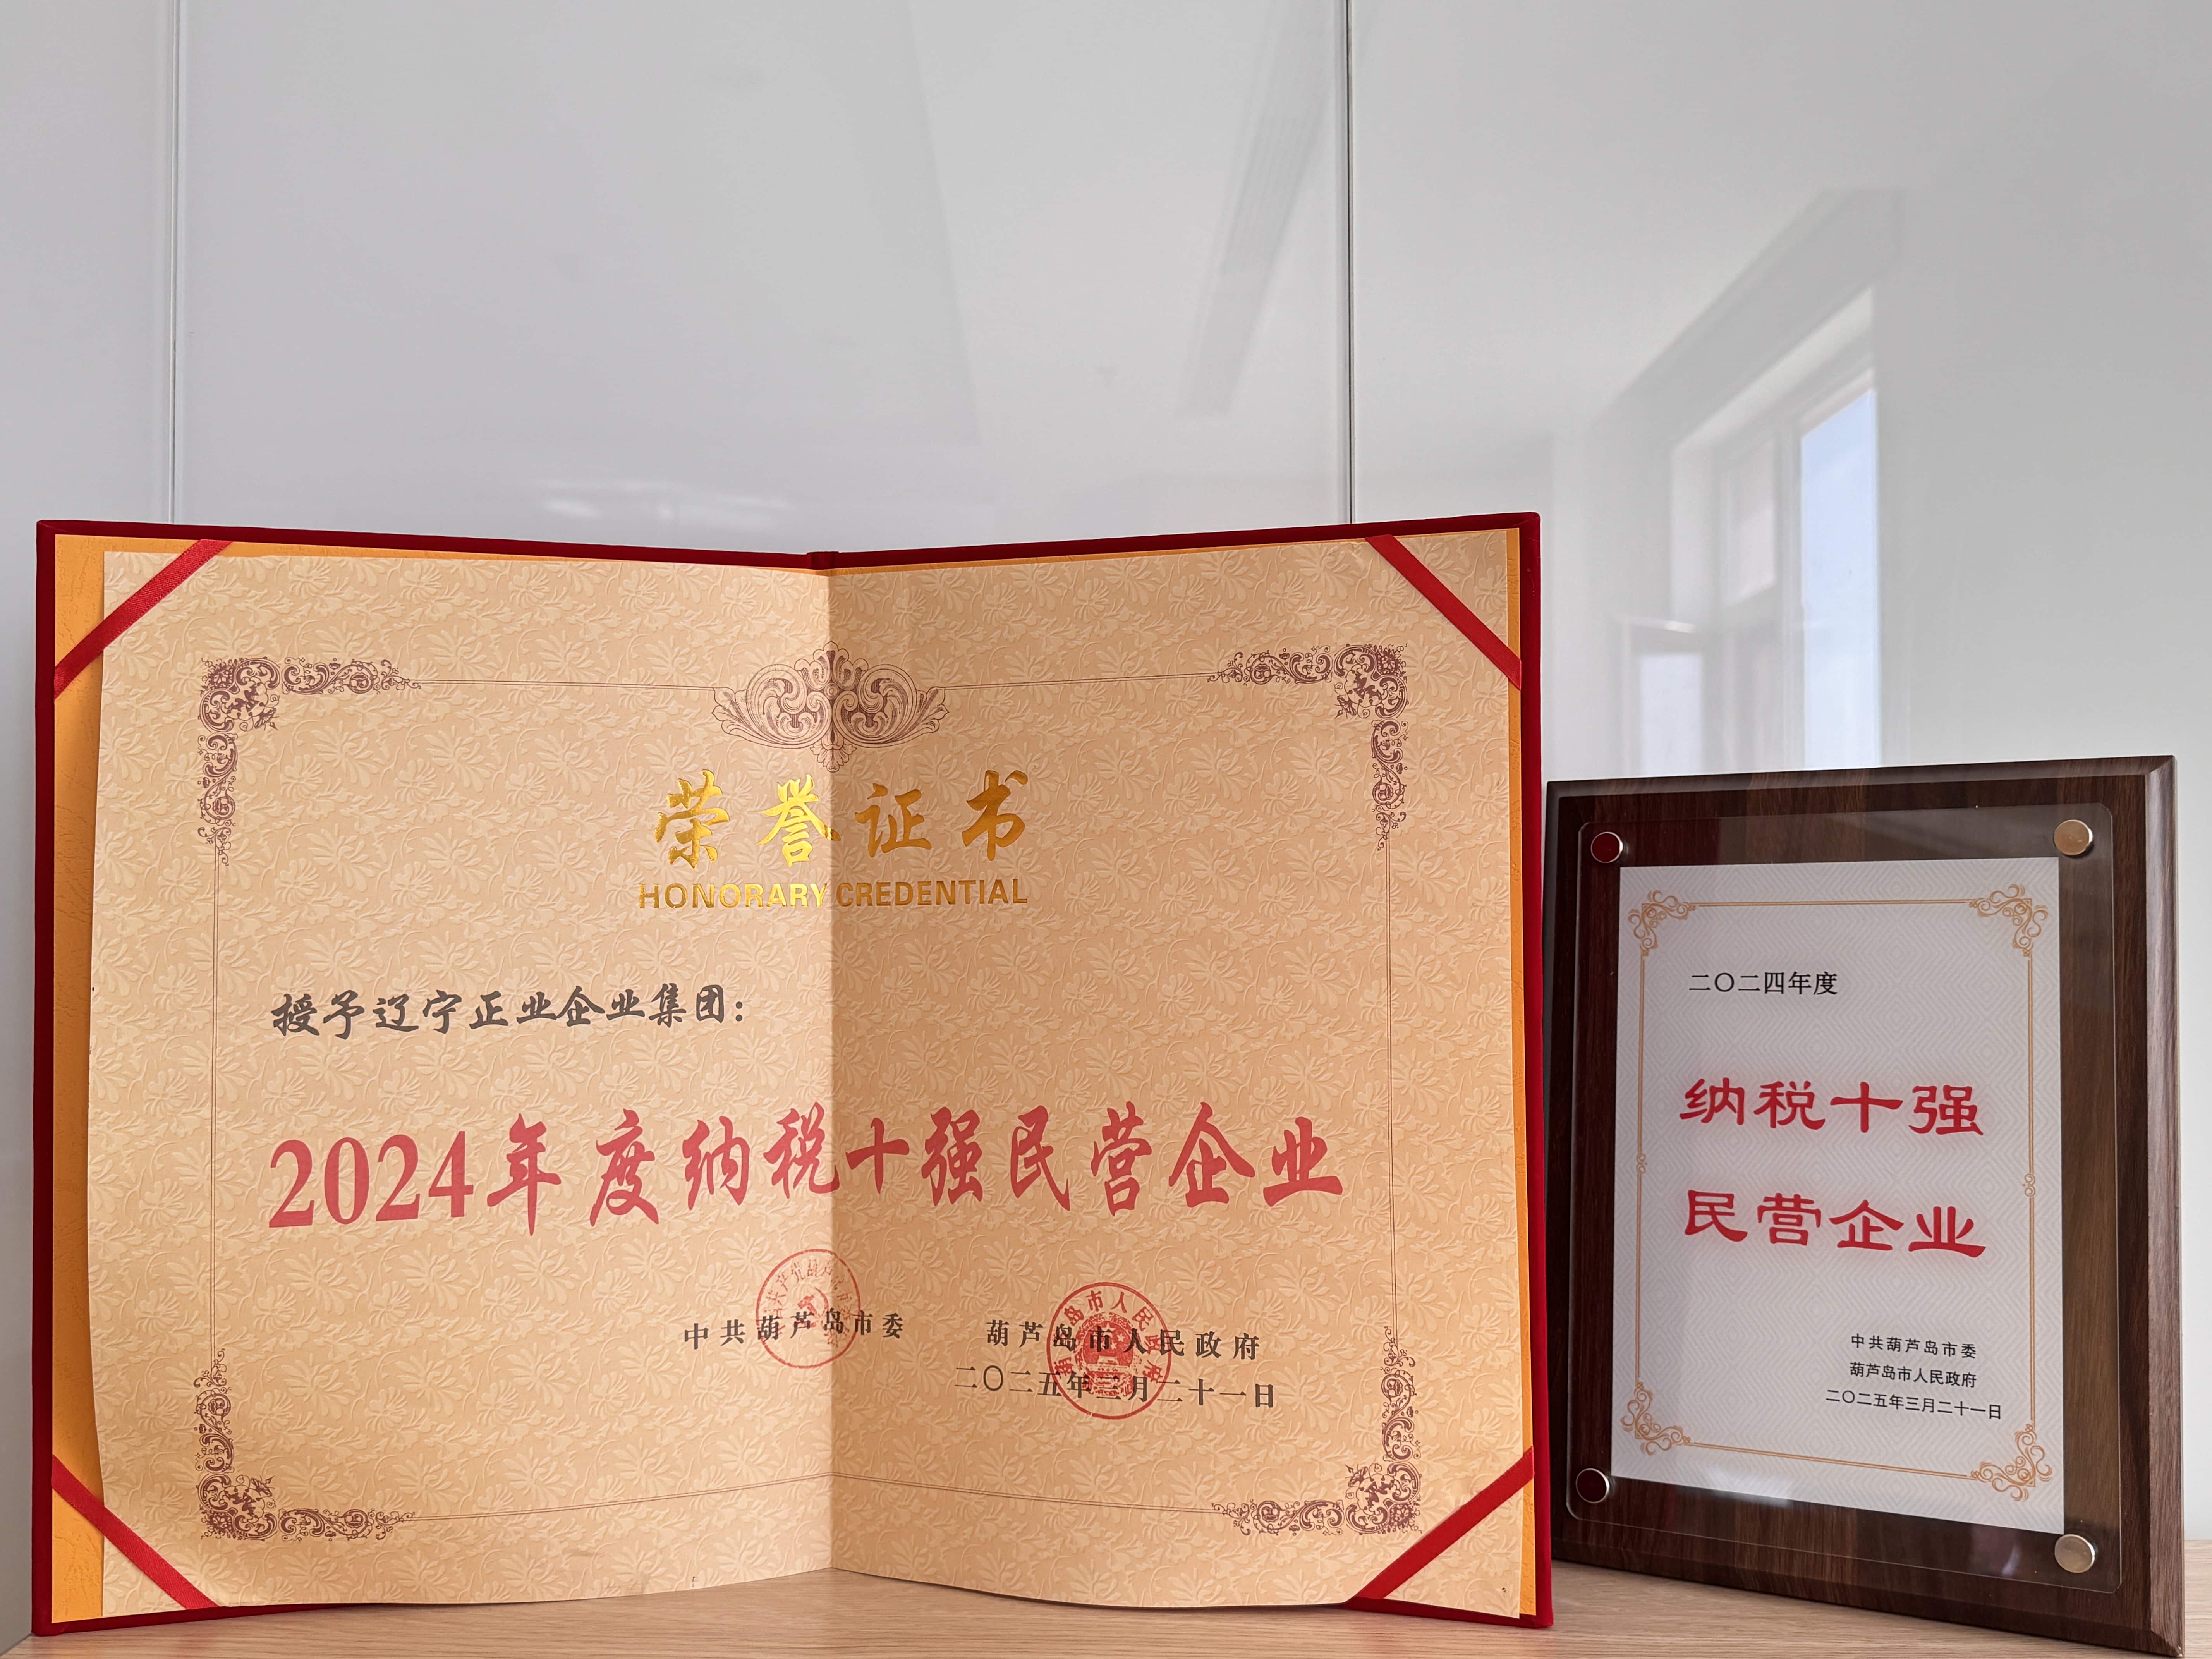 荣誉证书
HONORARY CREDENTIAL
授予辽宁正业企业集团：
2024年度纳税十强民营企业
中共葫芦岛市委 葫芦岛市人民政府
二〇二五年三月二十一日
二〇二四年度
纳税十强
民营企业
中共葫芦岛市委
葫芦岛市人民政府
二〇二五年三月二十一日